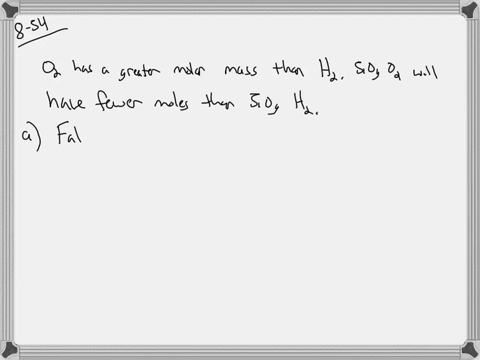 8-54
O2 has a greater molar mass than H2. 5.0g O2 will
have fewer moles than 5.0g H2.
a) Fal